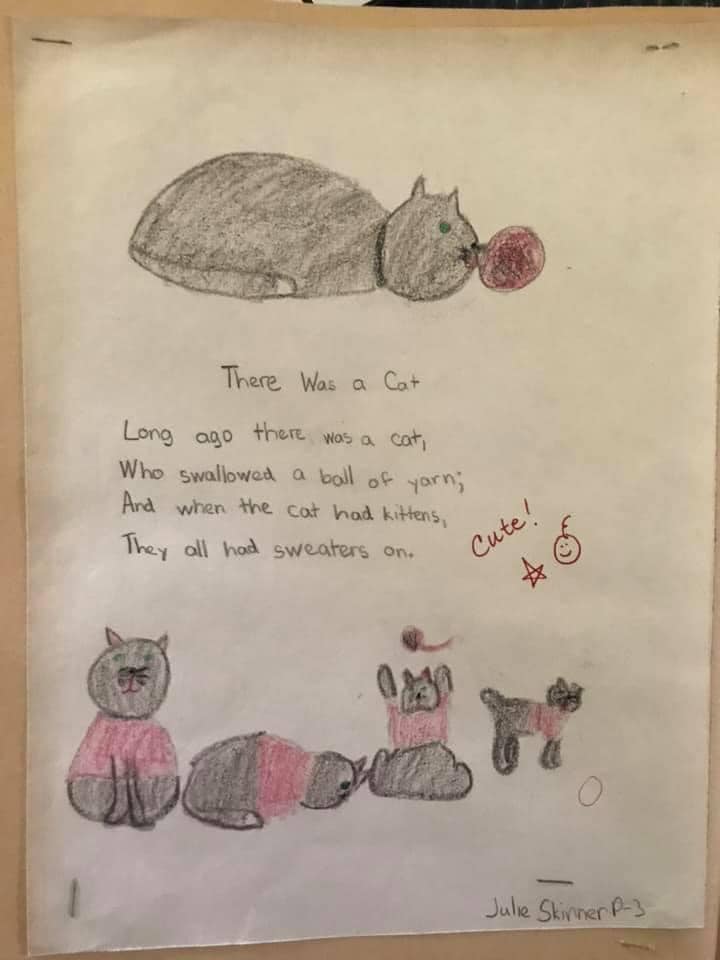 There Was a Cat
Long ago there was a cat,
Who swallowed a ball of yarn;
And when the cat had kittens,
They all had sweaters on.
Cute!
Julie Skinner P-3